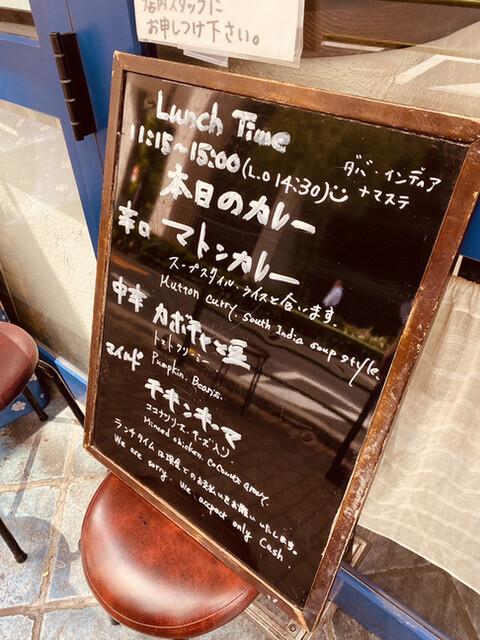 店内スタッフに
お申しつけ下さい。
Lunch Time
11:15~15:00(L.O 14:30)
ダバ・インディア
ナマステ
本日のカレー
辛口 マトンカレー
スープスタイル・ライスと合います。
Mutton curry. South India soup style.
中辛 カボチャと豆
トマトグリーミー
Pumpkin. Beans.
マイルド チキンキーマ
ココナツソース、チーズ入り
Minced chicken. Coconuts gravy.
ランチタイムは現金でのお支払いをお願いいたします。
We are sorry. We accept only Cash